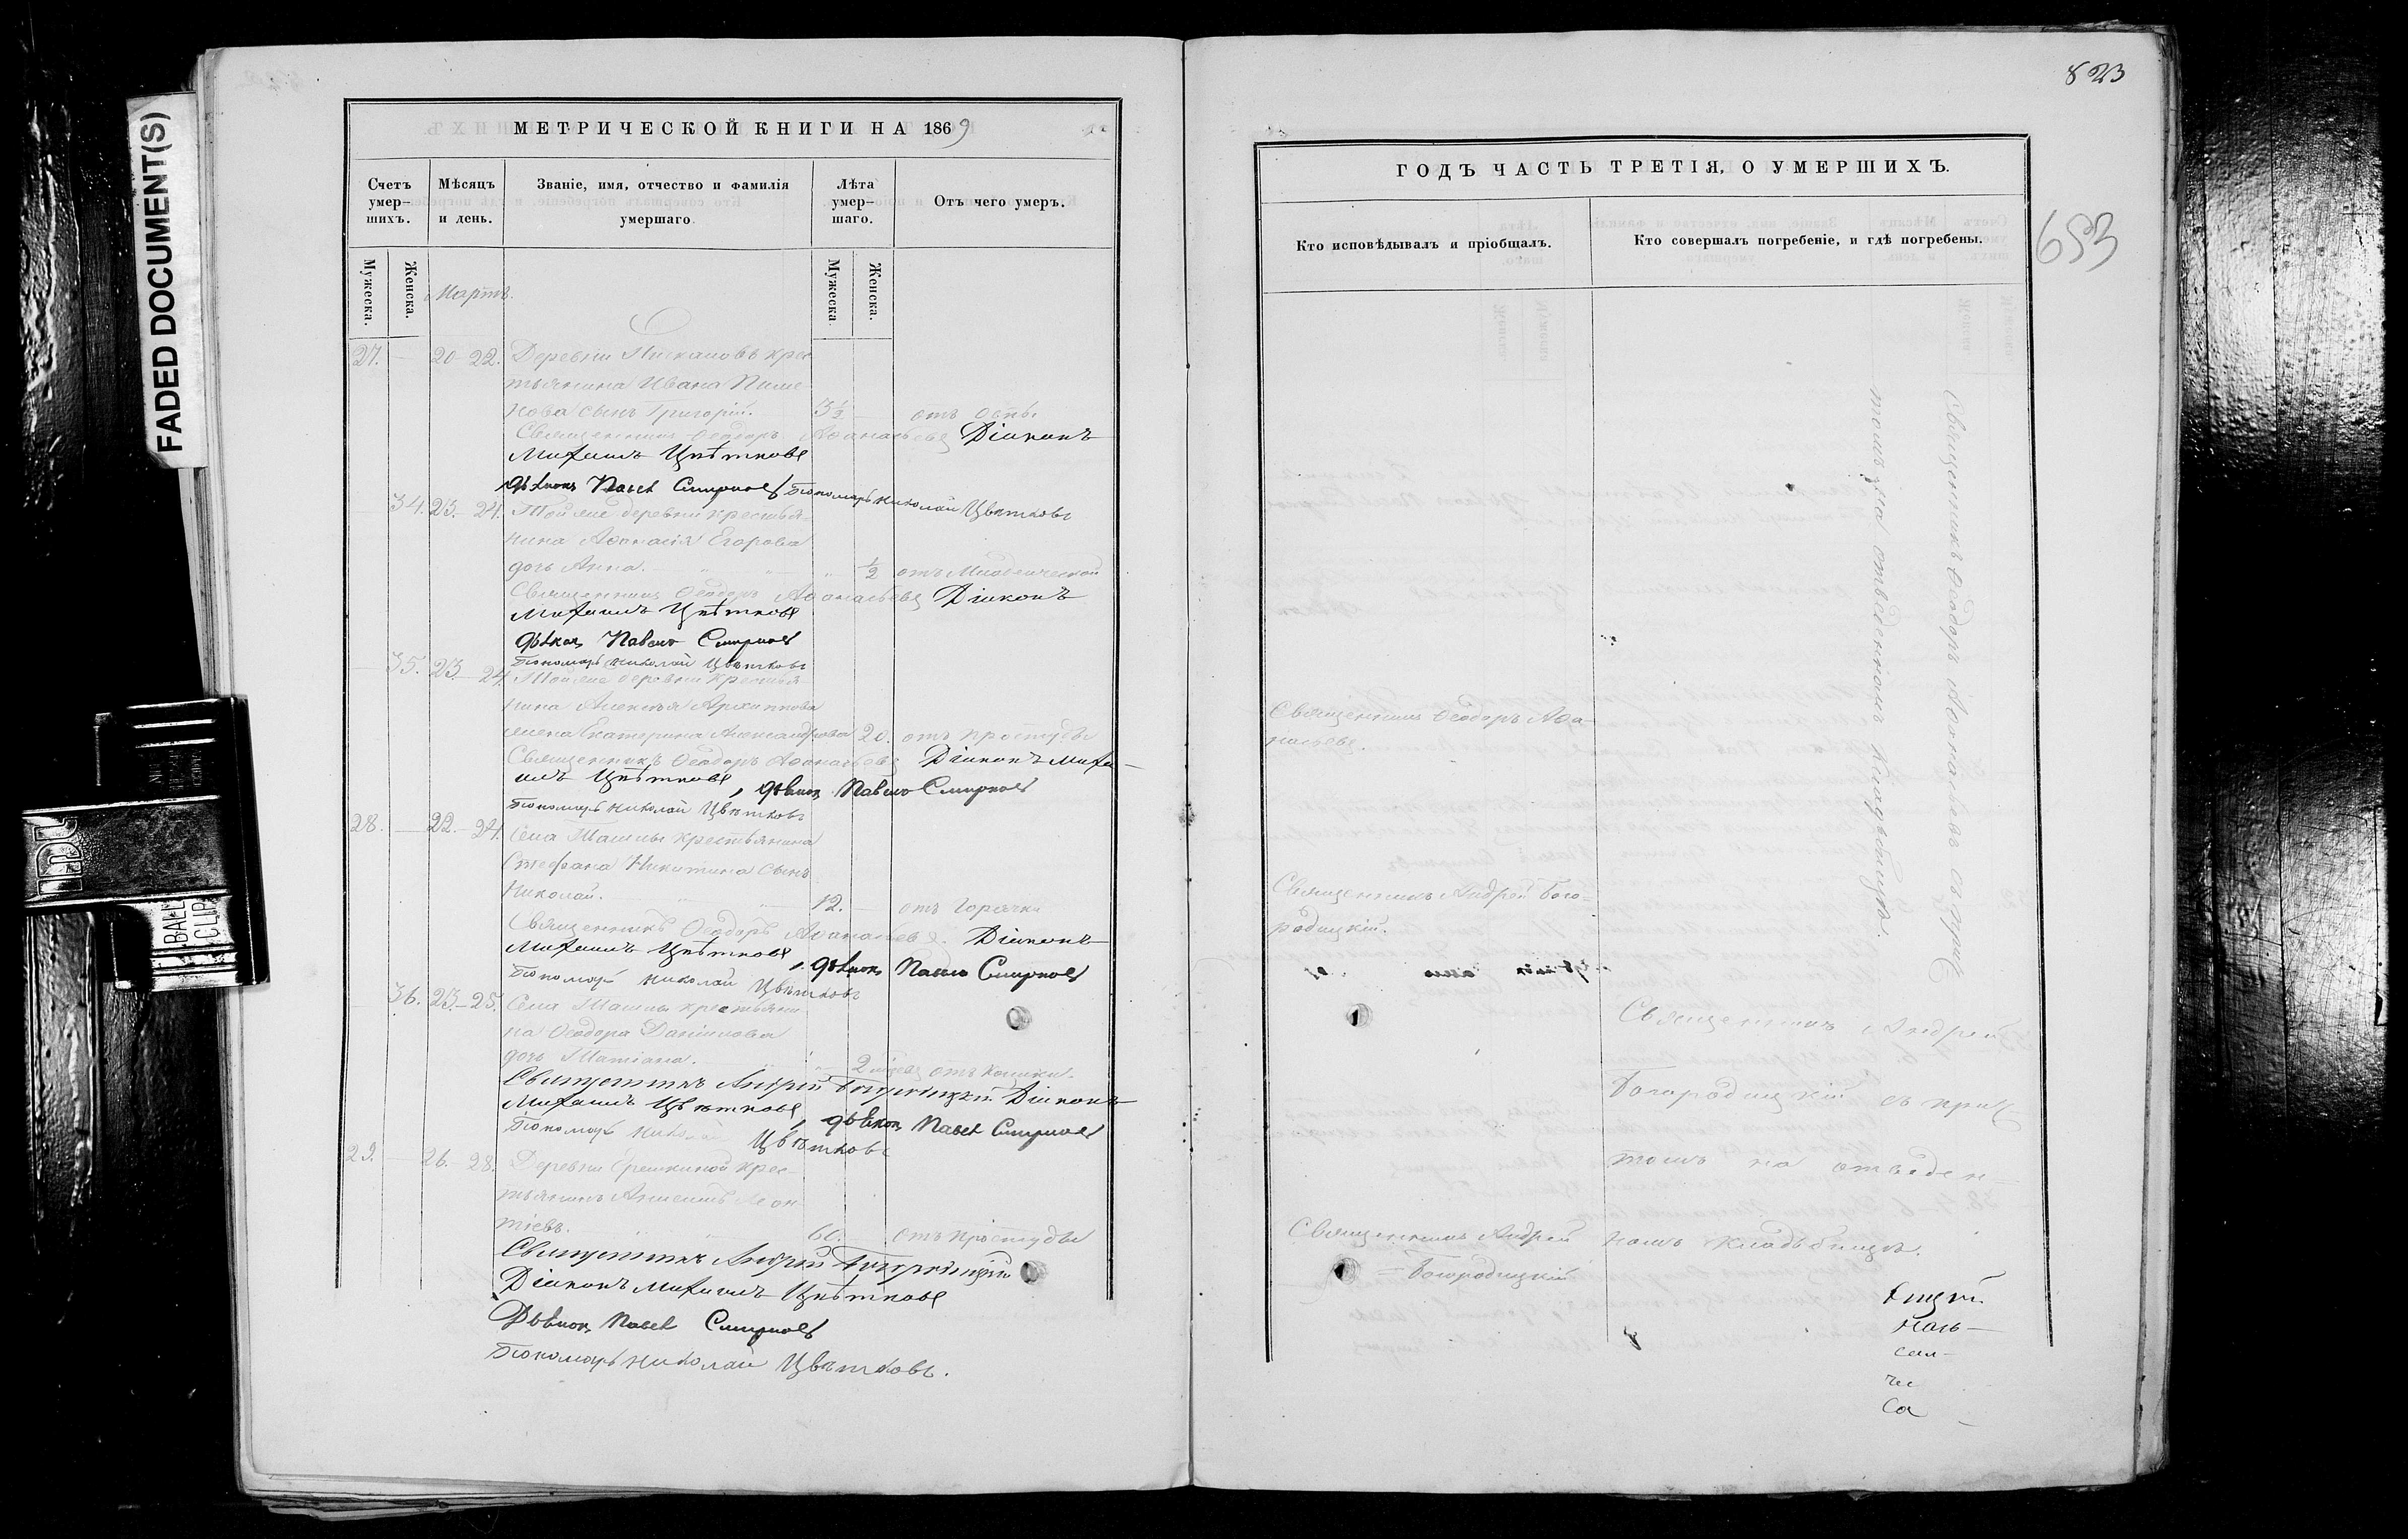 FADED DOCUMENT(S)
МЕТРИЧЕСКОЙ КНИГИ НА 1869
Счетъ умер-шихъ.
Мѣсяцъ и день.
Званіе, имя, отчество и фамилія умершаго.
Лѣта умер-шаго.
Отъ чего умеръ.
Мужеска. Женска.
Мужеска. Женска.
Мартъ.
27. — 20 22. Деревни крес
тьянина Ивана Пиме
нова сынъ Григорій. 3½ — отъ оспы
Священникъ Ѳеодоръ Аѳанасьевъ Діаконъ
Михаилъ Цвѣтковъ
дьячокъ Павелъ Смирновъ Пономарь Николай Цвѣтковъ
— 34. 23. 24. Той же деревни крестья-
нина Аѳанасія Егорова
дочь Анна. — " — " — ½ отъ Младенческой
Священникъ Ѳеодоръ Аѳанасьевъ Діаконъ
Михаилъ Цвѣтковъ
дьячокъ Павелъ Смирновъ
Пономарь Николай Цвѣтковъ
— 35. 23. — 24. Той же деревни крестья-
нина Алексѣя Архиппова
жена Екатерина Александрова 20. отъ простуды
Священникъ Ѳеодоръ Аѳанасьевъ Діаконъ Миха-
илъ Цвѣтковъ, дьячокъ Павелъ Смирновъ
Пономарь Николай Цвѣтковъ
28. — 22. — 24. Села Ташлы крестьянина
Стефана Никитина сынъ
Николай. — 12. отъ горячки
Священникъ Ѳеодоръ Аѳанасьевъ. Діаконъ
Михаилъ Цвѣтковъ, дьячокъ Павелъ Смирновъ
Пономарь Николай Цвѣтковъ
— 36. 23. — 25. Села Ташлы крестьяни
на Ѳеодора Даніилова
дочь Татіана. 2 отъ кашли.
Священникъ Андрей Богородицкій Діаконъ
Михаилъ Цвѣтковъ, дьячокъ Павелъ Смирновъ
Пономарь Николай Цвѣтковъ
29. — 26. — 28. Деревни Ерешкиной крес-
тьянинъ Леон
тіевъ. 60. отъ простуды
Священникъ Андрей Богородицкій
Діаконъ Михаилъ Цвѣтковъ
Дьячокъ Павелъ Смирновъ
Пономарь Николай Цвѣтковъ.
823
653
ГОДЪ ЧАСТЬ ТРЕТІЯ, О УМЕРШИХЪ.
Кто исповѣдывалъ и пріобщалъ.
Кто совершалъ погребеніе, и гдѣ погребены.
Священникъ Ѳеодоръ Аѳанасьевъ съ прич
томъ на отведенномъ кладбищѣ.
Священникъ Ѳеодоръ Аѳа-
насьевъ.
Священникъ Андрей Бого-
родицкій.
Священникъ Андрей
Богородицкій съ прич
томъ на отведен-
номъ кладбищѣ.
Священникъ Андрей
Богородицкій
наль-
чс
са
BALL CLIP